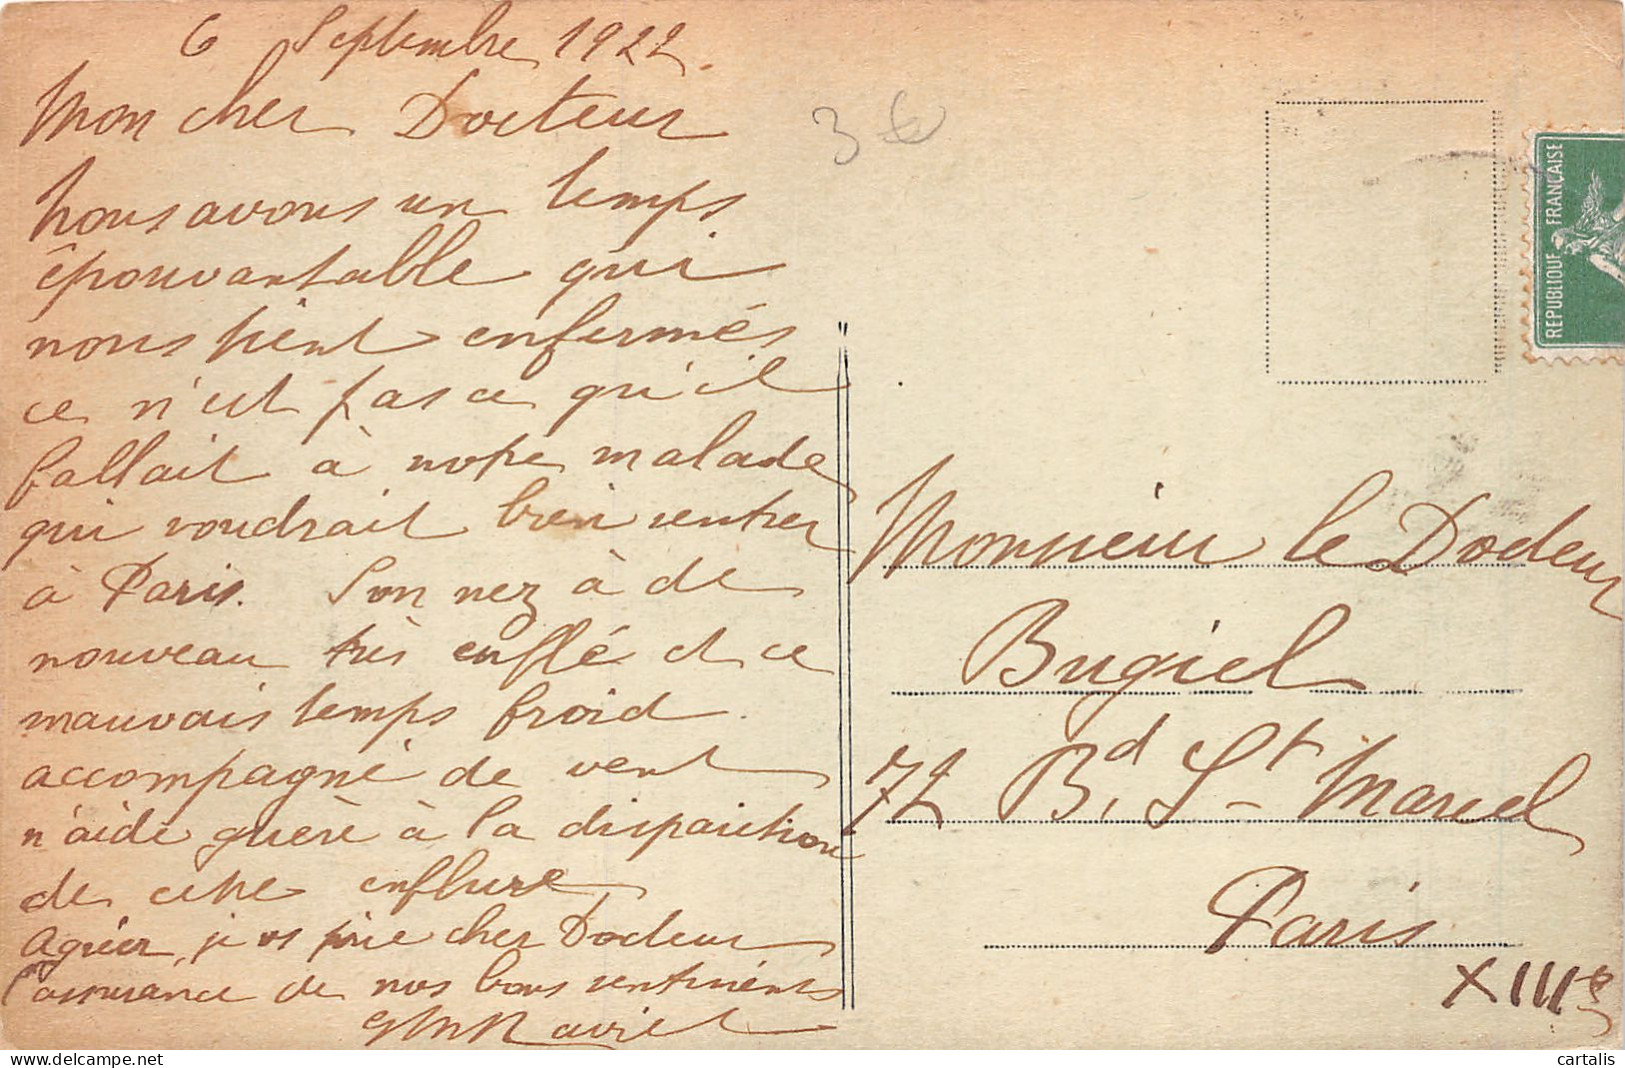 6 Septembre 1922.
Mon cher Docteur
Nous avons un temps
épouvantable qui
nous tient enfermés
ce n'est pas ce qu'il
fallait à notre malade
qui voudrait bien rentrer
à Paris. Son nez à de
nouveau très enflé et ce
mauvais temps froid
accompagné de vent
n'aide guère à la disparition
de cette enflure
Agréer, je vs prie cher Docteur
l'assurance de nos bons sentiments
3 €
REPUBLIQUE FRANÇAISE
Monsieur le Docteur
Bugiel
72 Bd St Marcel
Paris
XIIIe
cartalis